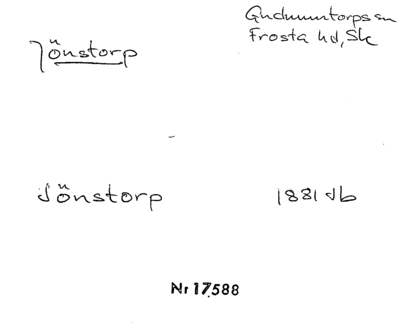 Jönstorp
Gudmuntorps sn
Frosta hd, Sk
Jönstorp
1881 Jb
Nr 17588